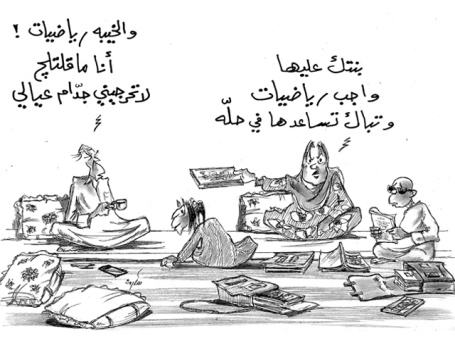 بنتكْ عليها
واجب رياضيات
وتباكْ تساعدها في حلّه
والخيبه رياضيات !
أنا ماقلتلچ
لاتحرجيني جدّام عيالي